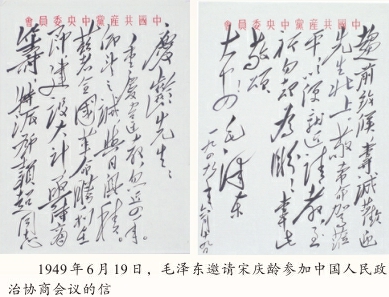 中國共產黨中央委員會
慶齡先生：
重慶違教，忽近四年。
仰望之誠，與日俱積。
茲者全國革命勝利在
即，建設大計，亟待商
籌，特派鄧穎超同志
中國共產黨中央委員會
趨前致候，專誠歡迎
先生北上。敬希命駕蒞
平，以便就近請教，至
祈勿却為盼！專此
敬頌
大安！
毛澤東
一九四九年六月十九日
1949年6月19日，毛泽东邀请宋庆龄参加中国人民政
治协商会议的信